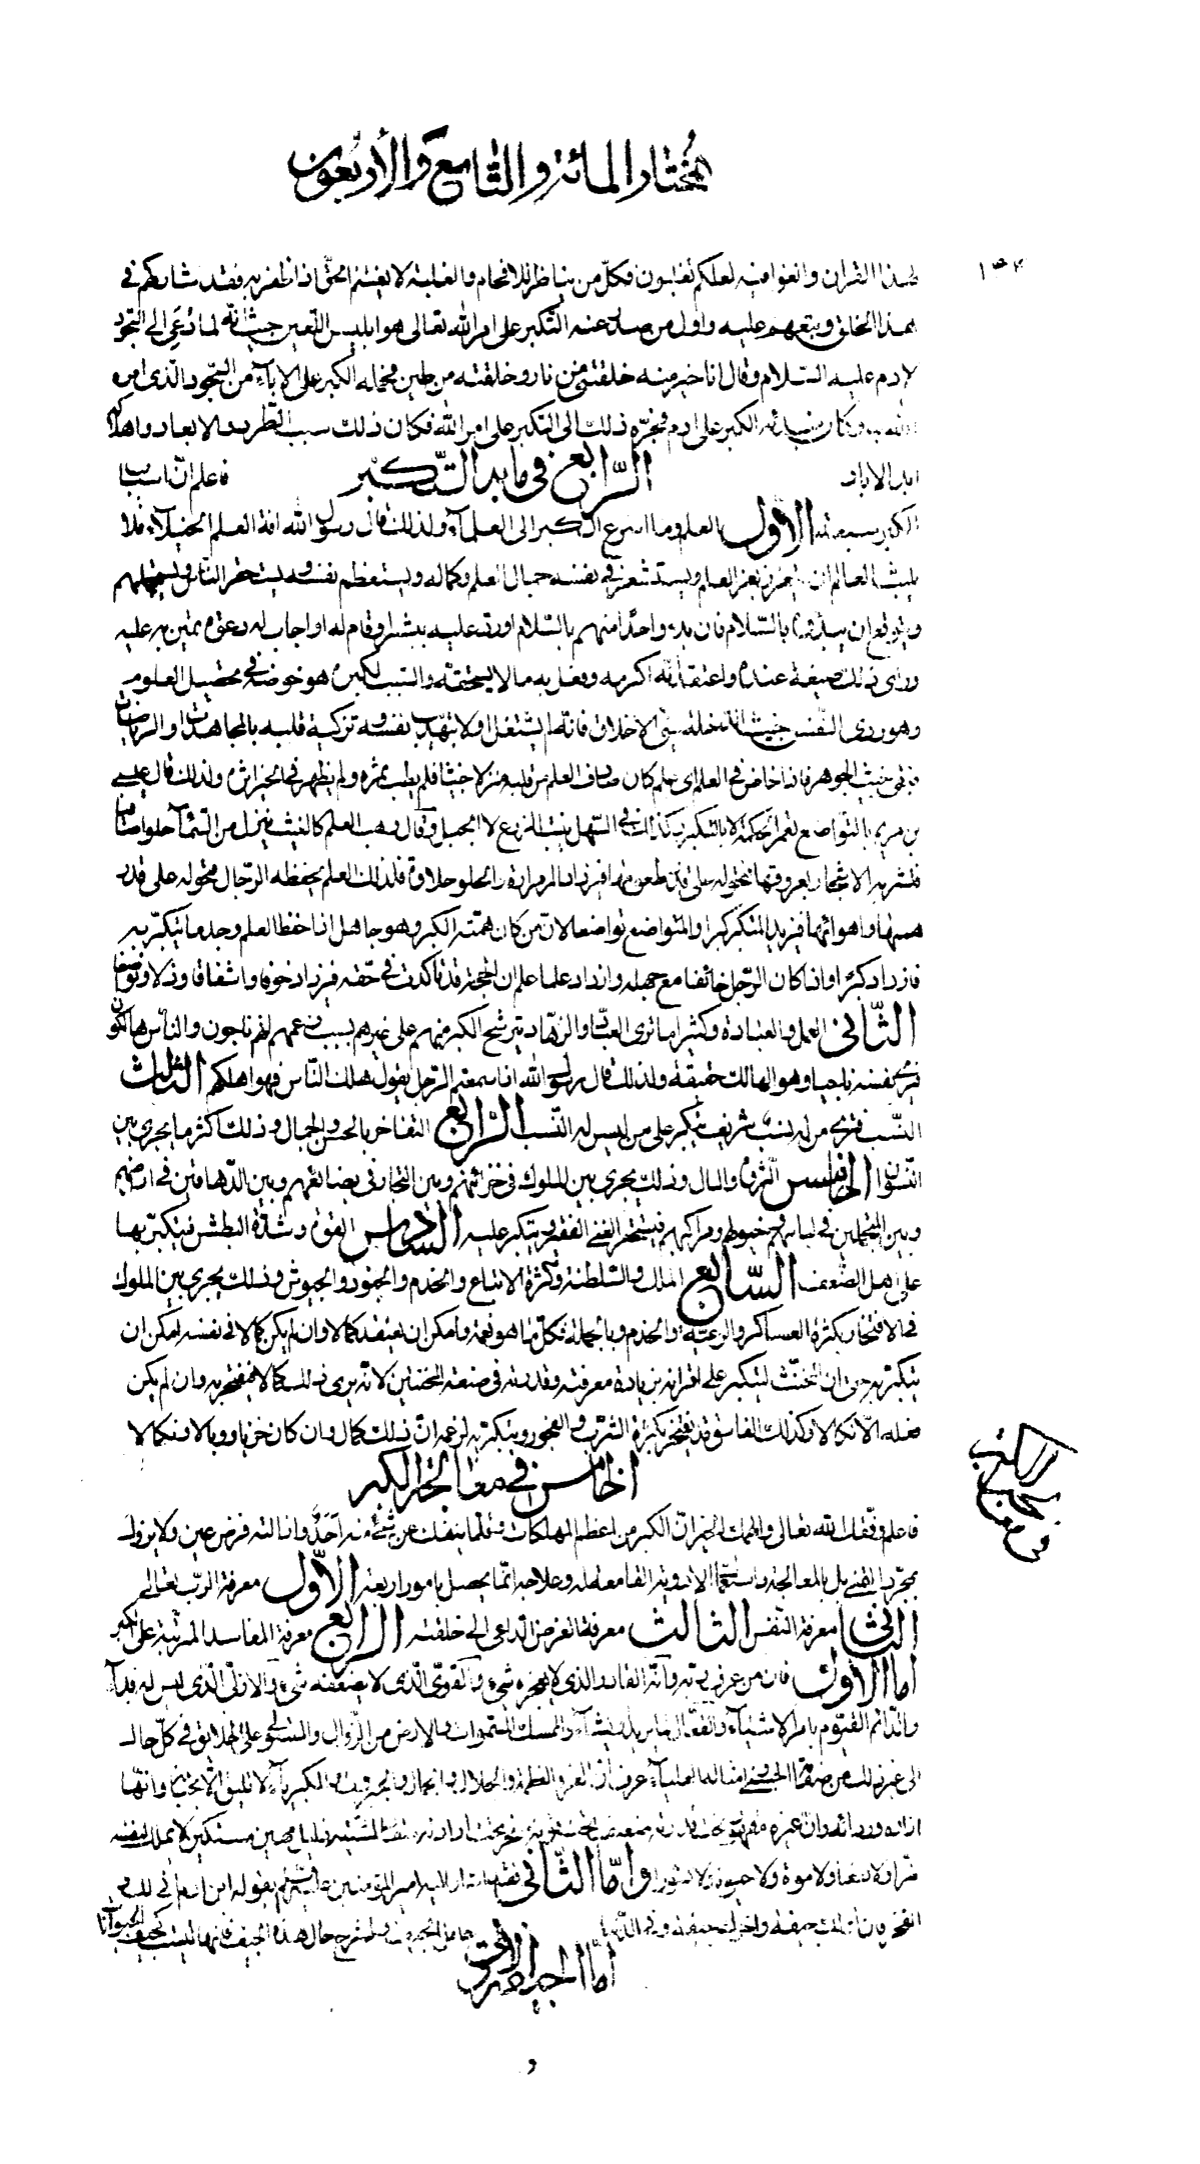 المختار المائة والتاسع والأربعون
١٣٤
لهذا القران والغوا فيه لعلكم تغلبون فكل من يناظر للافحام والغلبة لا يغتنم الحق اذا ظفر به فقد شاركهم في
هذا الخلق وتبعهم عليه واول من صدر عنه التكبر على امر الله تعالى هو ابليس اللعين حيث انه لما دعي الى السجود
لادم عليه السلام وقال انا خير منه خلقتني من نار وخلقته من طين فحمله الكبر على الاباء من السجود الذي امره
الله به وكان مبدئه الكبر على ادم فجره ذلك الى التكبر على امر الله فكان ذلك سبب الطرد والابعاد واهلاكه
ابد الاباد الرابع في ما به التكبر فاعلم ان اسباب
الكبر سبعة الاول العلم وما اسرع الكبر الى العلماء ولذلك قال رسول الله افة العلم الخيلاء فلا
يلبث العالم ان يتعزز بعز العلم ويستشعر في نفسه جمال العلم وكماله ويستعظم نفسه ويستحقر الناس ويستجهلهم
ويتوقع ان يبدؤه بالسلام فان بدء واحدا منهم بالسلام اورد عليه ببشر او قام له او اجاب له دعوة يمتن به عليه
وراى ذلك صنيعة عنده واعتقد انه اكرمه وفعل به ما لا يستحقه والسبب لكبره هو خوضه في تحصيل العلوم
وهو ردى النفس خبيث الدخلة سيئ الاخلاق فانه لم يشتغل اولا بتهذيب نفسه وتزكية قلبه بالمجاهدات والرياضات
فبقى خبيث الجوهر فاذا خاض في العلم اى علم كان صادف العلم من قلبه منزلا خبيثا فلم يطب ثمره ولم يظهر في الخير اثره ولذلك قال عيسى
بن مريم بالتواضع تعمر الحكمة لا بالتكبر كذلك في السهل ينبت الزرع لا الجبل وقال وهب العلم كالغيث ينزل من السماء حلوا صافيا
فتشربه الاشجار بعروقها فتحوله على قدر طعومها فيزداد المر مرارة والحلو حلاوة فكذلك العلم يحفظه الرجال فتحوله على قدر
هممها واهوائها فيزيد المتكبر كبرا والمتواضع تواضعا لان من كان همته الكبر وهو جاهل اذا حفظ العلم وجد ما يتكبر به
فازداد كبرا واذا كان الرجل خائفا مع جهله وازداد علما علم ان الحجة قد تاكدت في حقه فيزداد خوفا واشفاقا وذلا وتواضعا
الثاني العمل والعبادة وكثيرا ما ترى العباد والزهاد يترشح الكبر منهم على غيرهم بسبب زعمهم انهم ناجون والناس هالكون
فيرى نفسه ناجيا وهو الهالك حقيقة ولذلك قال رسول الله اذا سمعتم الرجل يقول هلك الناس فهو اهلكهم الثالث
النسب فترى من له نسب شريف يتكبر على من ليس له النسب الرابع التفاخر بالحسن والجمال وذلك اكثر ما يجرى بين
النسوان الخامس الثروة والمال وذلك يجرى بين الملوك في خزائنهم وبين التجار في بضائعهم وبين الدهاقين في اراضيهم
وبين المتجملين في لباسهم وخيولهم ومراكبهم فيستحقر الغني الفقير ويتكبر عليه السادس القوة وشدة البطش فيتكبر بها
على اهل الضعف السابع الملك والسلطنة وكثرة الاتباع والخدم والجنود والجيوش وذلك يجرى بين الملوك
في الافتخار بكثرة العساكر والرعية والخدم وبالجملة فكل ما هو نعمة وامكن ان يعتقد كمالا وان لم يكن كمالا في نفسه امكن ان
يتكبر به حتى ان المخنث ليتكبر على اقرانه بزيادة معرفته وقدرته في صنعة المخنثين لانه يرى ذلك كمالا فيفتخر به وان لم يكن
فعله الا نكالا وكذلك الفاسق قد يفتخر بكثرة الشرب والفجور ويتكبر به لزعمه ان ذلك كمال وان كان خزيا ووبالا ونكالا
الخامس في معالجة الكبر
فاعلم وفقك الله تعالى والهمك الخير ان الكبر من اعظم المهلكات وقلما ينفك عن شئ منه احد وازالته فرض عين ولا يزول
بمجرد التمني بل بالمعالجة واستعمال الادوية القامعة له وعلاجه انما يحصل بامور اربعة الاول معرفة الرب تعالى
الثاني معرفة النفس الثالث معرفة الغرض الداعى الى خلقته الرابع معرفة المفاسد المترتبة على الكبر
اما الاول فان من عرف ربه وانه القادر الذي لا يعجزه شئ والقوى الذى لا يضعفه شئ والازلي الذى ليس له فناء
والدائم القيوم بامر الاشياء والفعال لما يريد ويشاء والممسك السموات والارض من الزوال والمتسلط على الخلايق في كل حال
الى غير ذلك من صفاته الحسنى وامثاله العليا عرف ان العز والعظمة والجلال والجمال والجبروت والكبرياء لا تليق الا بجنابه وانها
ازاره وردائه وان غيره مقهور تحت قدرته
ضرا ولا نفعا ولا موتا ولا حيوة ولا نشورا واما الثاني فقد اشار اليه امير المؤمنين عليه السلم بقوله ابن ادم انى لك و
الفخر فان اولك جيفة واخرك جيفة وفي الدنيا حامل الجيف ولنشرح حال هذه الجيف فانها ليست كجيف الحيوانات
اما الجيفة الاولى